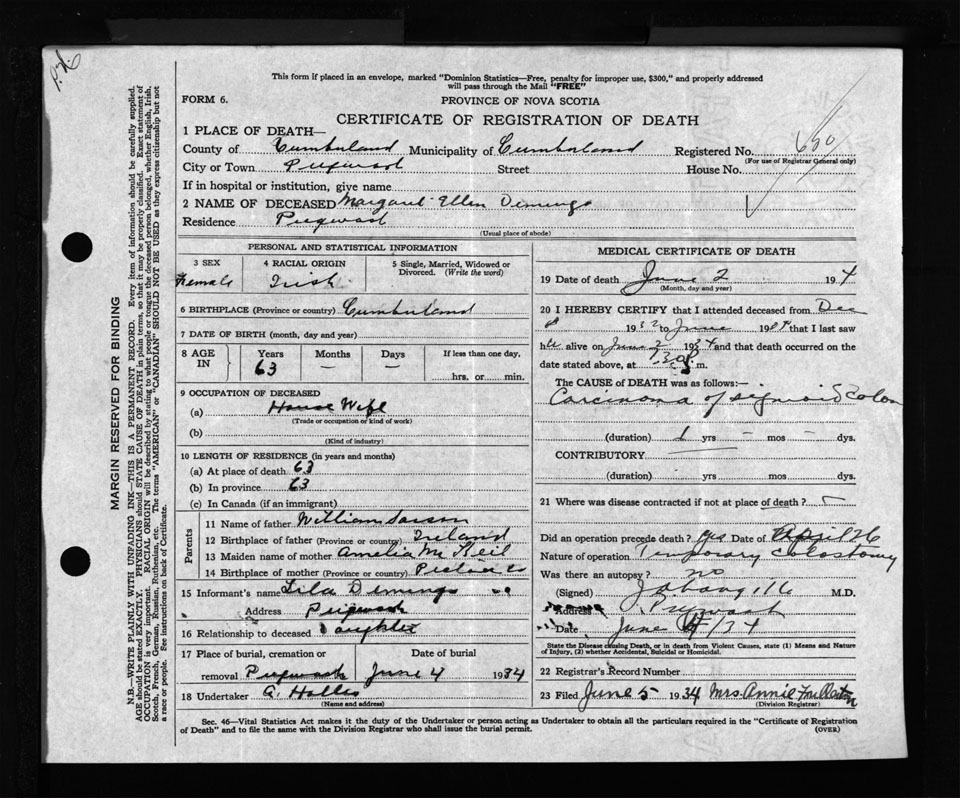 P.N.
This form if placed in an envelope, marked "Dominion Statistics—Free, penalty for improper use, $300," and properly addressed
will pass through the Mail "FREE"
FORM 6.
PROVINCE OF NOVA SCOTIA
CERTIFICATE OF REGISTRATION OF DEATH
1 PLACE OF DEATH—
County of Cumberland Municipality of Cumberland Registered No. 650
(For use of Registrar General only)
City or Town Pugwash Street House No.
If in hospital or institution, give name
2 NAME OF DECEASED Margaret Ellen Demings
Residence Pugwash
(Usual place of abode)
PERSONAL AND STATISTICAL INFORMATION
3 SEX 4 RACIAL ORIGIN 5 Single, Married, Widowed or
Divorced. (Write the word)
Female Irish
6 BIRTHPLACE (Province or country) Cumberland
7 DATE OF BIRTH (month, day and year)
8 AGE IN Years Months Days If less than one day,
63 — — hrs. or min.
9 OCCUPATION OF DECEASED
(a) House Wife
(Trade or occupation or kind of work)
(b)
(Kind of industry)
10 LENGTH OF RESIDENCE (in years and months)
(a) At place of death 63
(b) In province 63
(c) In Canada (if an immigrant)
Parents
11 Name of father William
12 Birthplace of father (Province or country) Ireland
13 Maiden name of mother Amelia McNeil
14 Birthplace of mother (Province or country) Pictou Co
15 Informant's name Lila Demings
Address Pugwash
16 Relationship to deceased Daughter
17 Place of burial, cremation or Date of burial
removal Pugwash June 4 1934
18 Undertaker
(Name and address)
MEDICAL CERTIFICATE OF DEATH
19 Date of death June 2 19 4
(Month, day and year)
20 I HEREBY CERTIFY that I attended deceased from Dec
8 1932 to June 1934 that I last saw
her alive on June 2 1934 and that death occurred on the
date stated above, at 1.30 P. m.
The CAUSE OF DEATH was as follows:—
Carcinoma of sigmoid Colon
(duration) 1 yrs — mos — dys.
CONTRIBUTORY
(duration) yrs mos dys.
21 Where was disease contracted if not at place of death?
Did an operation precede death? yes Date of April 26
Nature of operation Temporary colostomy
Was there an autopsy? no
(Signed) M.D.
Address Pugwash
Date June 4/34
State the Disease causing Death, or in death from Violent Causes, state (1) Means and Nature
of Injury, (2) whether Accidental, Suicidal or Homicidal.
22 Registrar's Record Number
23 Filed June 5 1934 Mrs. Annie Fullerton
(Division Registrar)
Sec. 46—Vital Statistics Act makes it the duty of the Undertaker or person acting as Undertaker to obtain all the particulars required in the "Certificate of Registration
of Death" and to file the same with the Division Registrar who shall issue the burial permit. (OVER)
MARGIN RESERVED FOR BINDING
N.B.—WRITE PLAINLY WITH UNFADING INK—THIS IS A PERMANENT RECORD. Every item of information should be carefully supplied.
AGE should be stated EXACTLY. PHYSICIANS should STATE CAUSE OF DEATH in plain terms, so that it may be properly classified. Exact statement of
OCCUPATION is very important. RACIAL ORIGIN will be described by stating to what people or tongue the deceased person belonged, whether English, Irish,
Scotch, French, German, Russian, Ruthenian, etc. The terms "AMERICAN" or "CANADIAN" SHOULD NOT BE USED as they express citizenship but not
a race or people. See instructions on back of Certificate.